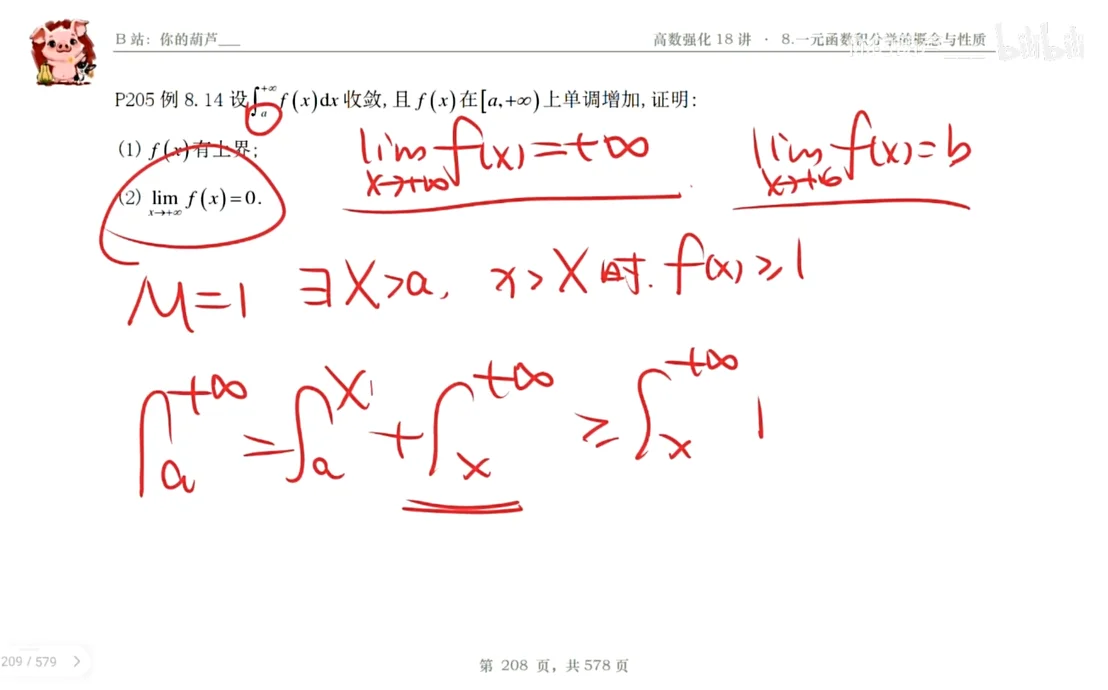 B 站：你的葫芦___
高数强化 18 讲 · 8.一元函数积分学的概念与性质
bilibili
P205 例 8.14 设∫ₐ^{+∞} f(x)dx 收敛, 且 f(x) 在 [a,+∞) 上单调增加, 证明:
(1) f(x) 有上界;
(2) lim_{x→+∞} f(x)=0.
lim_{x→+∞} f(x)=+∞
lim_{x→+∞} f(x)=b
M=1 ∃X>a, x>X时. f(x)≥1
∫ₐ^{+∞} = ∫ₐ^{X} + ∫_{X}^{+∞} ≥ ∫_{X}^{+∞} 1
209 / 579 >
第 208 页, 共 578 页